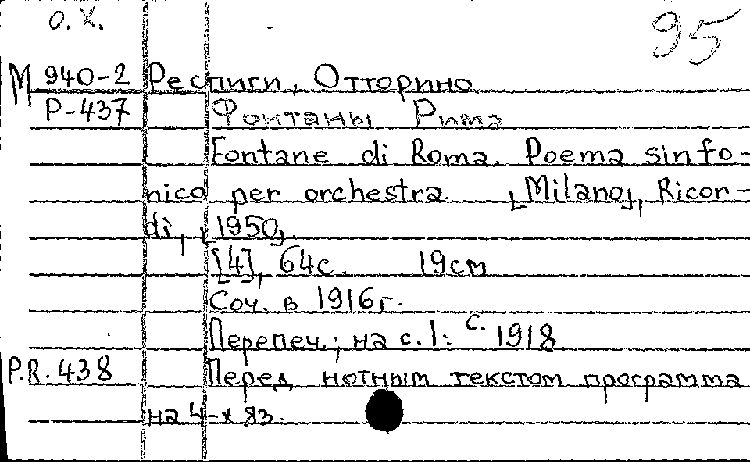 О.Х.
95
М 940-2 Респиги, Отторино
Р-437 Фонтаны Рима
Fontane di Roma. Poema sinfo-
nico per orchestra [Milano], Ricor-
di, [1950].
[4], 64с. 19см
Соч. в 1916г.
Перепеч.; на с.1: с. 1918
P.R. 438 Перед нотным текстом программа
на 4-х яз.